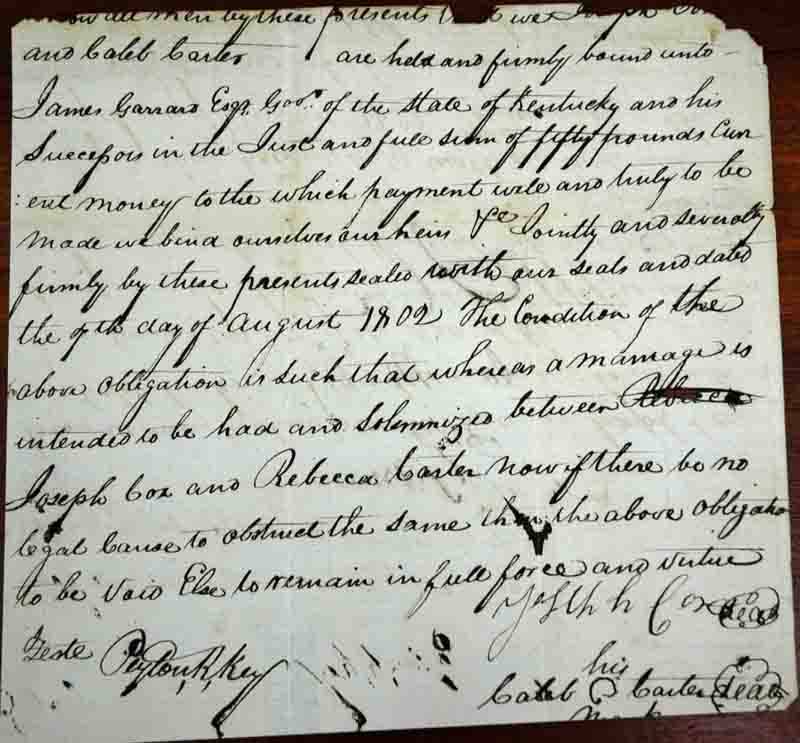 know all men by these presents that we Joseph Cox
and Caleb Carter are held and firmly bound unto
James Garrard Esqr. Govr. of the state of Kentucky and his
Successors in the Just and full sum of fifty pounds Curr
ent money to the which payment well and truly to be
made we bind ourselves our heirs &c Jointly and severally
firmly by these presents sealed with our seals and dated
the 9th day of August 1802 The Condition of the
above obligation is such that whereas a marriage is
intended to be had and Solemnized between Rebecca
Joseph Cox and Rebecca Carter now if there be no
legal Cause to obstruct the same then the above obligatio
to be void Else to remain in full force and virtue
Joseph Cox seal
Teste Peyton R. Key
his
Caleb C Carter seal
Mark